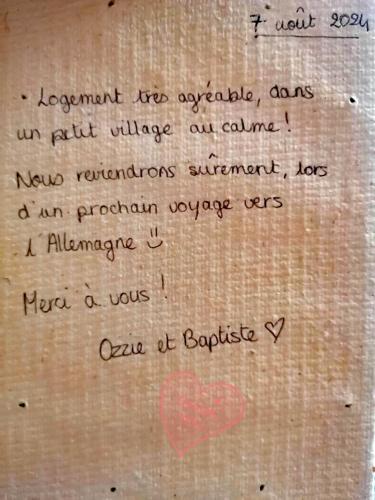 7 août 2024
• Logement très agréable, dans
un petit village au calme !
Nous reviendrons sûrement, lors
d'un prochain voyage vers
l'Allemagne ☺
Merci à vous !
Ozzie et Baptiste ♡